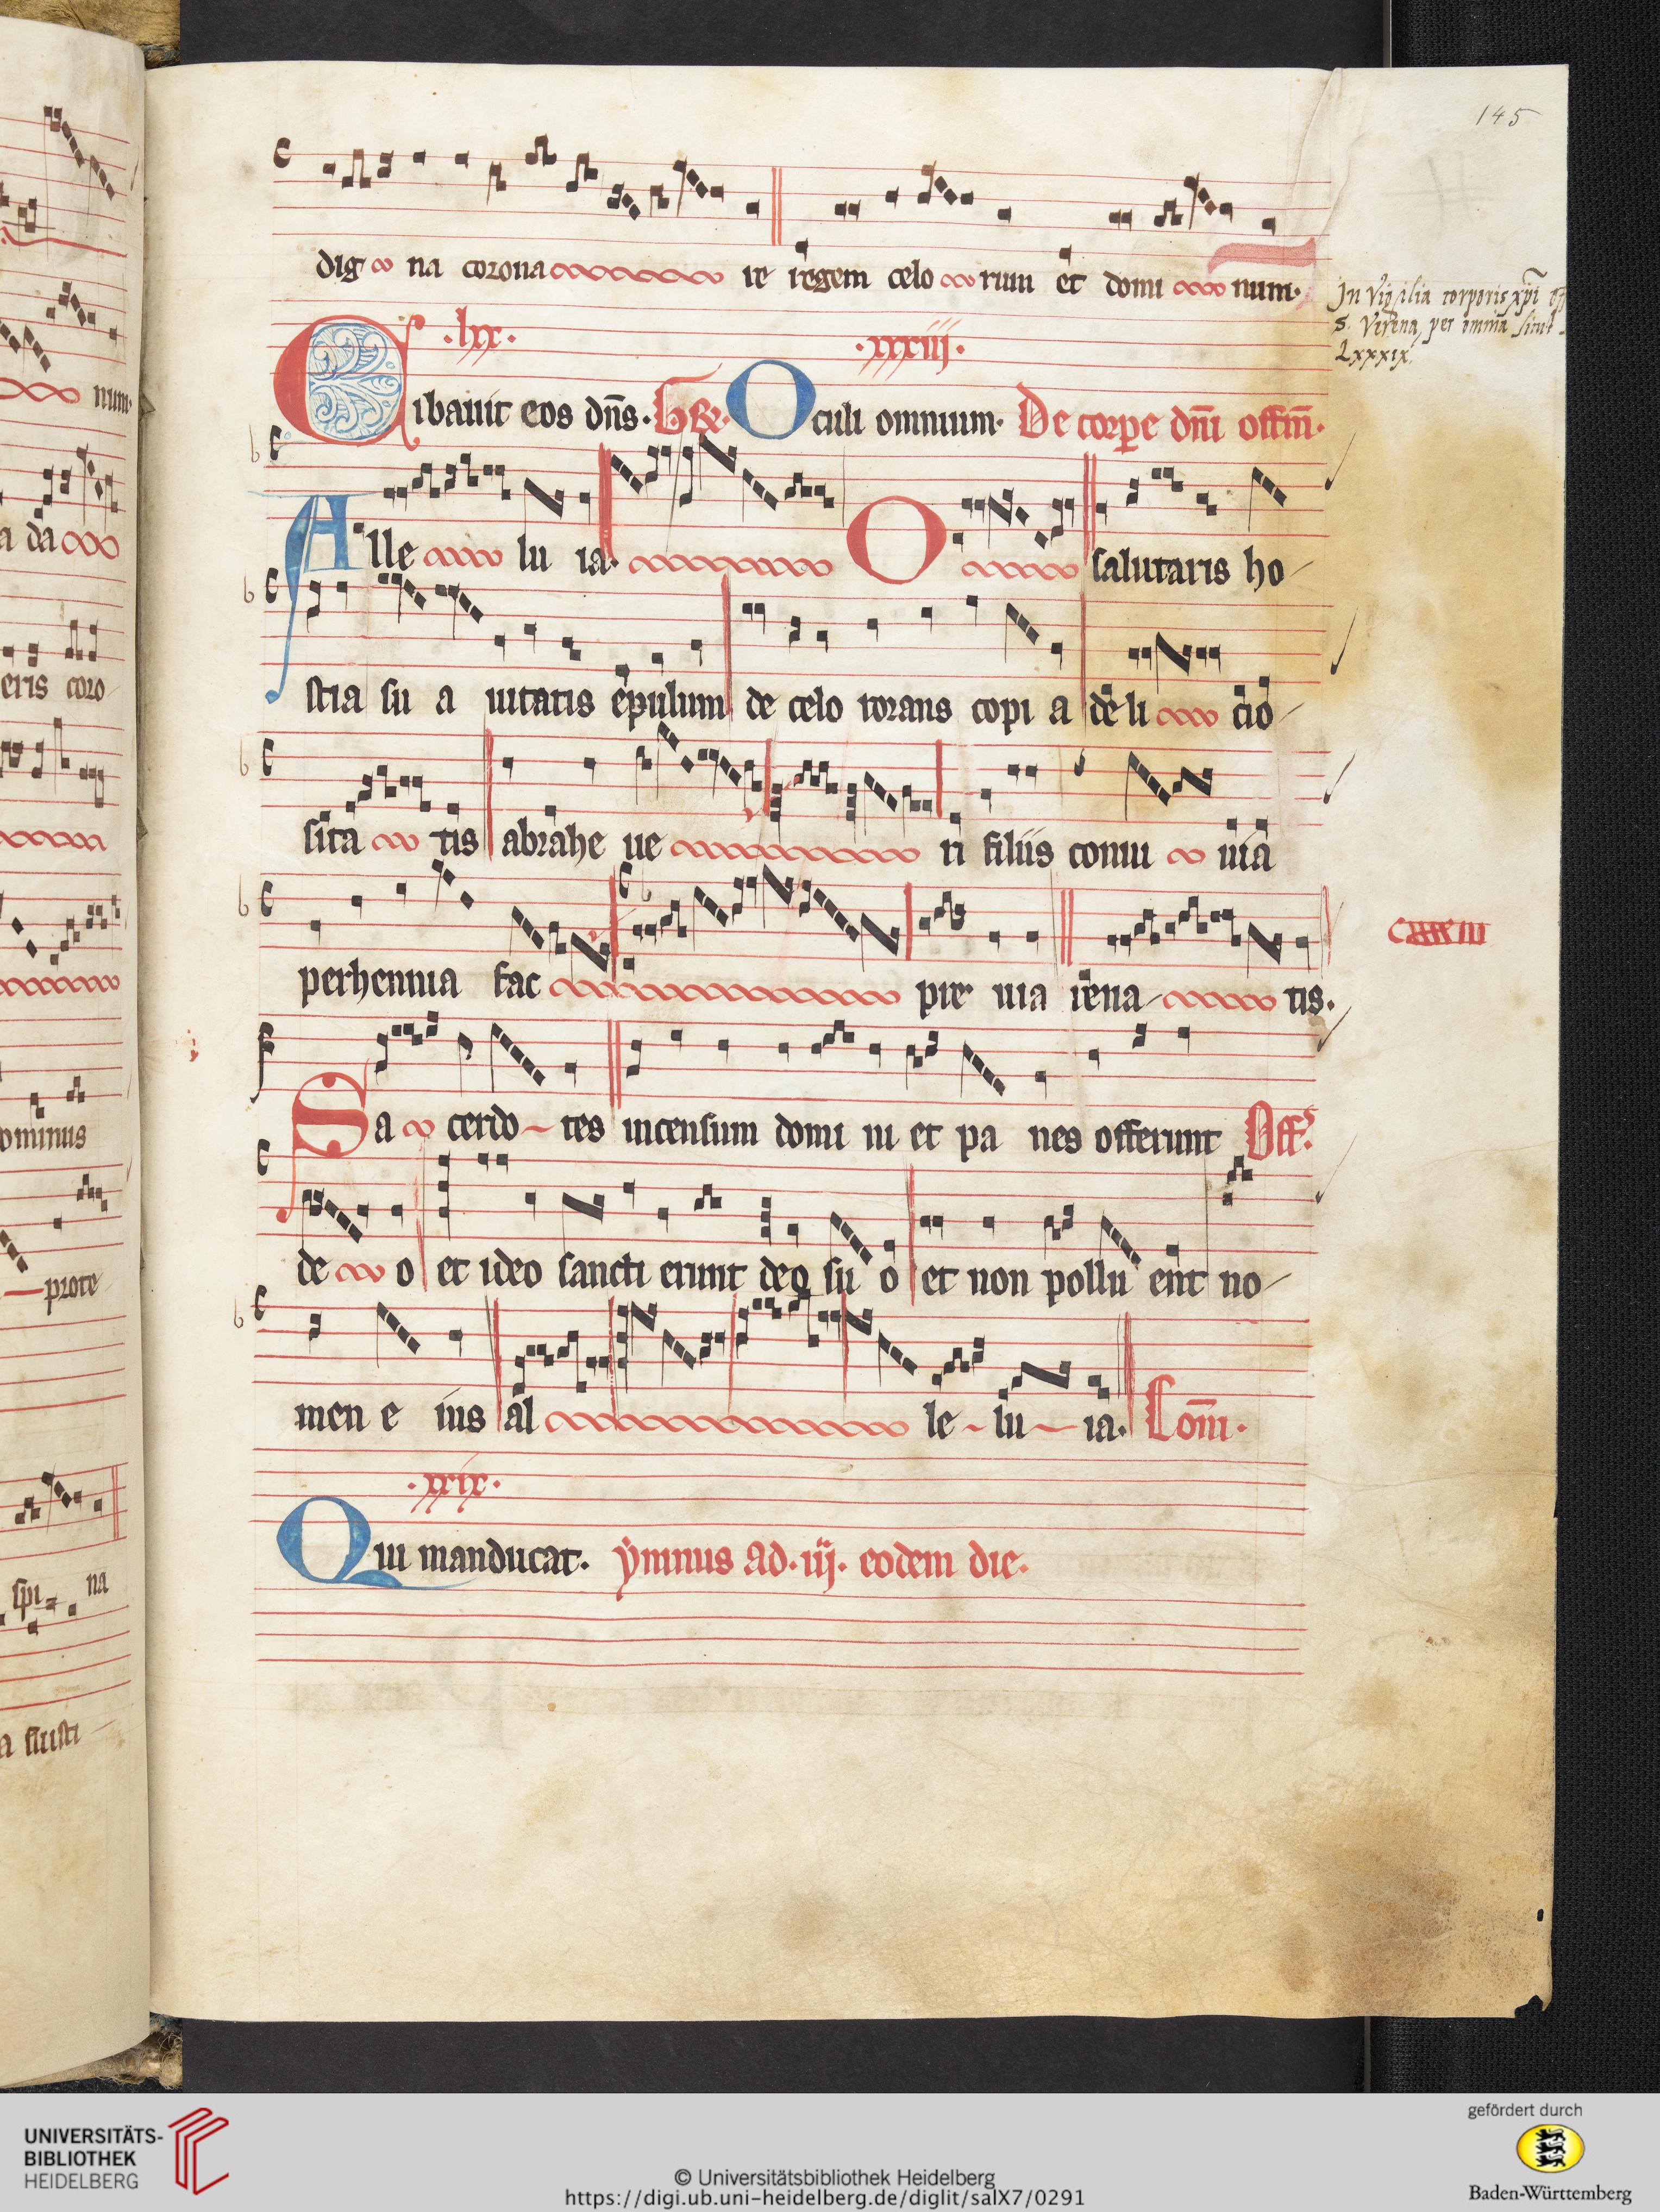 145
num
a da
eris coro
ominus
prote
spi na
digna corona re regem celorum et dominum.
In Vigilia corporis xpi
S. Verena, per omnia sicut
Lxxxix.
.lxx. .xxxiij.
Cibauit eos dn̄s. Oculi omnium. De corpe dn̄i offm̄.
Alleluia. O salutaris ho
stia suauitatis epulum de celo rorans copia delicio
sitatis abrahe ueri filiis conuiuia
perhennia fac pie uia renatis.
CXXXXIII
Sacerdotes incensum domini et panes offerunt Off
deo et ideo sancti erunt deo suo et non polluent no
men eius alleluia. Com̄.
.xxix.
Qui manducat. ymnus ad .iij. eodem die.
UNIVERSITÄTS-
BIBLIOTHEK
HEIDELBERG
© Universitätsbibliothek Heidelberg
https://digi.ub.uni-heidelberg.de/diglit/salX7/0291
gefördert durch
Baden-Württemberg